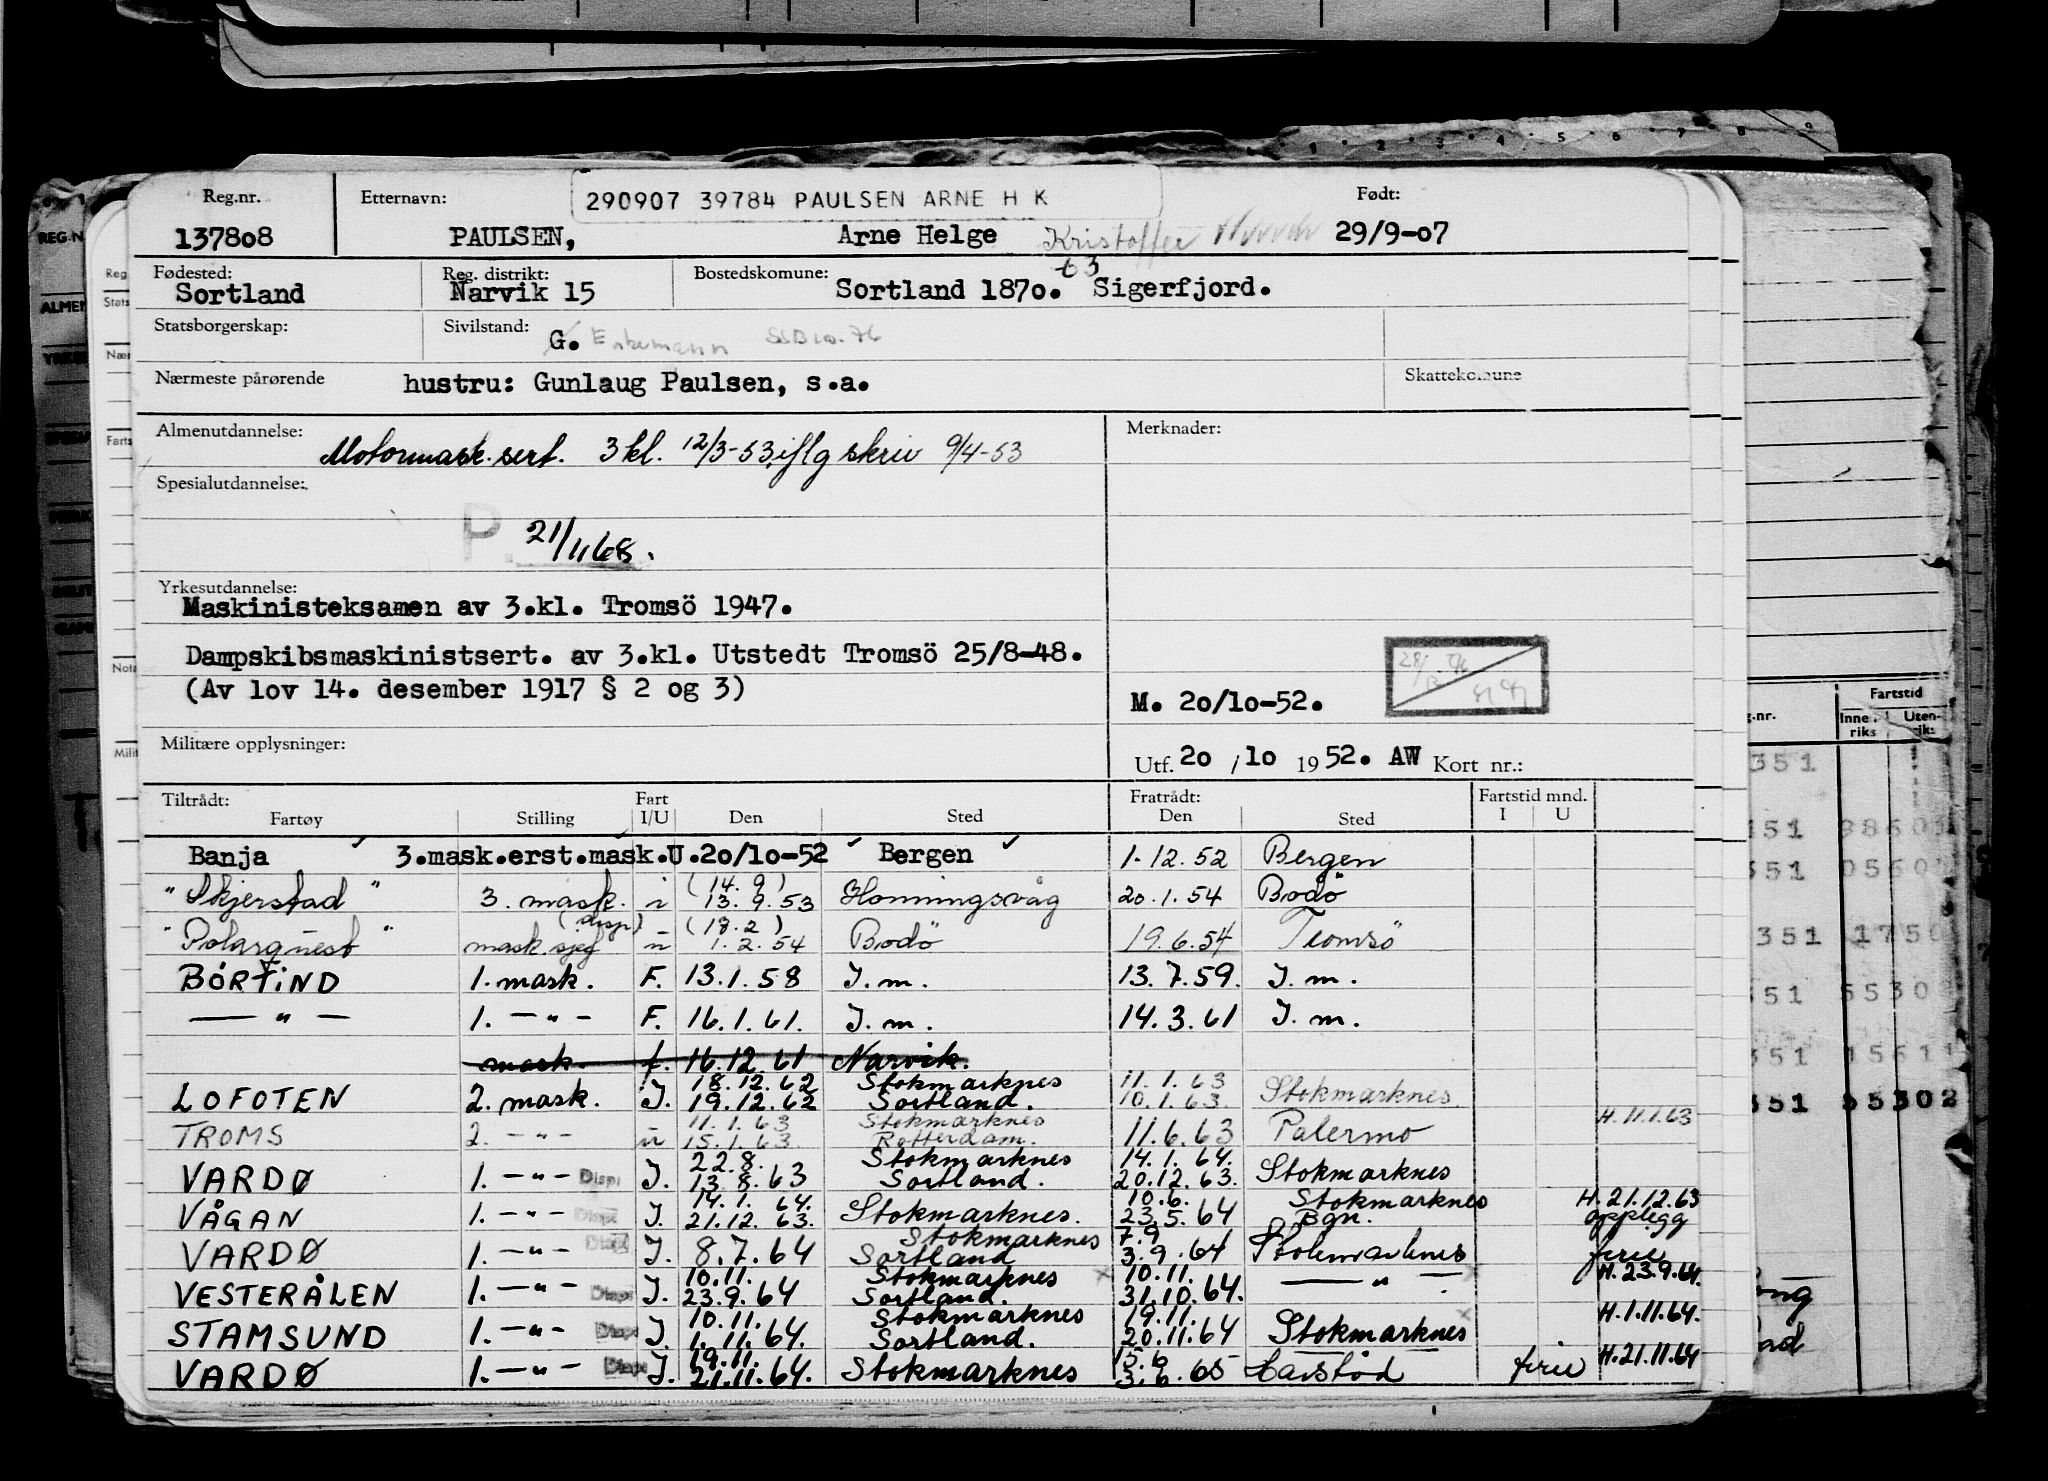 Reg.nr. Etternavn: 290907 39784 PAULSEN ARNE H K Født:
137808 PAULSEN, Arne Helge Kristoffer 29/9-07
Fødested: Reg. distrikt: Bostedskomune: t3
Sortland Narvik 15 Sortland 1870. Sigerfjord.
Statsborgerskap: Sivilstand: G. Enkemann SSB 10.76
Nærmeste pårørende hustru: Gunlaug Paulsen, s.a. Skattekomune
Almenutdannelse: Merknader:
Motormask.sert. 3 kl. 12/3-53, iflg skriv 9/4-53
Spesialutdannelse:
P. 21/1168.
Yrkesutdannelse:
Maskinisteksamen av 3.kl. Tromsö 1947.
Dampskibsmaskinistsert. av 3.kl. Utstedt Tromsö 25/8-48.
(Av lov 14. desember 1917 § 2 og 3)
M. 20/10-52.
Militære opplysninger:
Utf. 20 / 10 1952. AW Kort nr.:
Tiltrådt: Fart Fratrådt: Fartstid mnd.
Fartøy Stilling I/U Den Sted Den Sted I U
Banja 3.mask.erst.mask.U.20/10-52 Bergen 1.12.52 Bergen
"Skjerstad" 3. mask. i (14.9) 13.9.53 Honningsvåg 20.1.54 Bodö
"Polarquest" mask.sjef (disp) u (18.2) 1.2.54 Bodö 19.6.54 Tromsö
BÖRTIND 1. mask. F. 13.1.58 I.m. 13.7.59. I.m.
— " — 1. — " — F. 16.1.61. I.m. 14.3.61 I.m.
mask. f. 16.12.61 Narvik.
18.12.62 Stokmarknes 11.1.63
LOFOTEN 2. mask. I. 19.12.62 Sortland. 10.1.63. Stokmarknes
11.1.63 Stokmarknes H. 11.1.63
TROMS 2. — " — u 15.1.63. Rotterdam. 11.6.63 Palermo
22.8. Stokmarknes 14.1.64.
VARDØ 1. — " — Disp I. 13.8.63 Sortland. 20.12.63. Stokmarknes
14.1.64. 10.6. Stokmarknes H. 21.12.63
VÅGAN 1. — " — Disp I. 21.12.63. Stokmarknes. 23.5.64 Bgn. opplegg
Stokmarknes 7.9
VARDØ 1. — " — Disp I. 8.7.64 Sortland 3.9.64 Stokmarknes ferie
10.11. Stokmarknes 10.11. H. 23.9.64.
VESTERÅLEN 1. — " — Disp I. 23.9.64 Sortland. 31.10.64. — " —
10.11. Stokmarknes 19.11. H. 1.11.64.
STAMSUND 1. — " — Disp I. 1.11.64. Sortland. 20.11.64 Stokmarknes
19.11. 15.6 H. 21.11.64
VARDØ 1. — " — Disp I. 21.11.64. Stokmarknes 3.6.65 Harstad ferie
Fartstid
Inneriks Utenriks
351
351 98603
351 0560
351 1750
351 55302
351 15611
351 55302